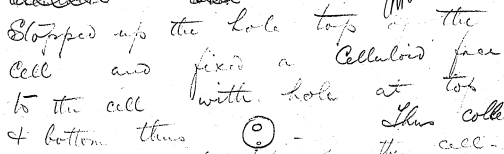 Stopped up the hole top of the
cell and fixed a Celluloid face
to the cell with hole at top
& bottom thus - Thus colle
the cell -